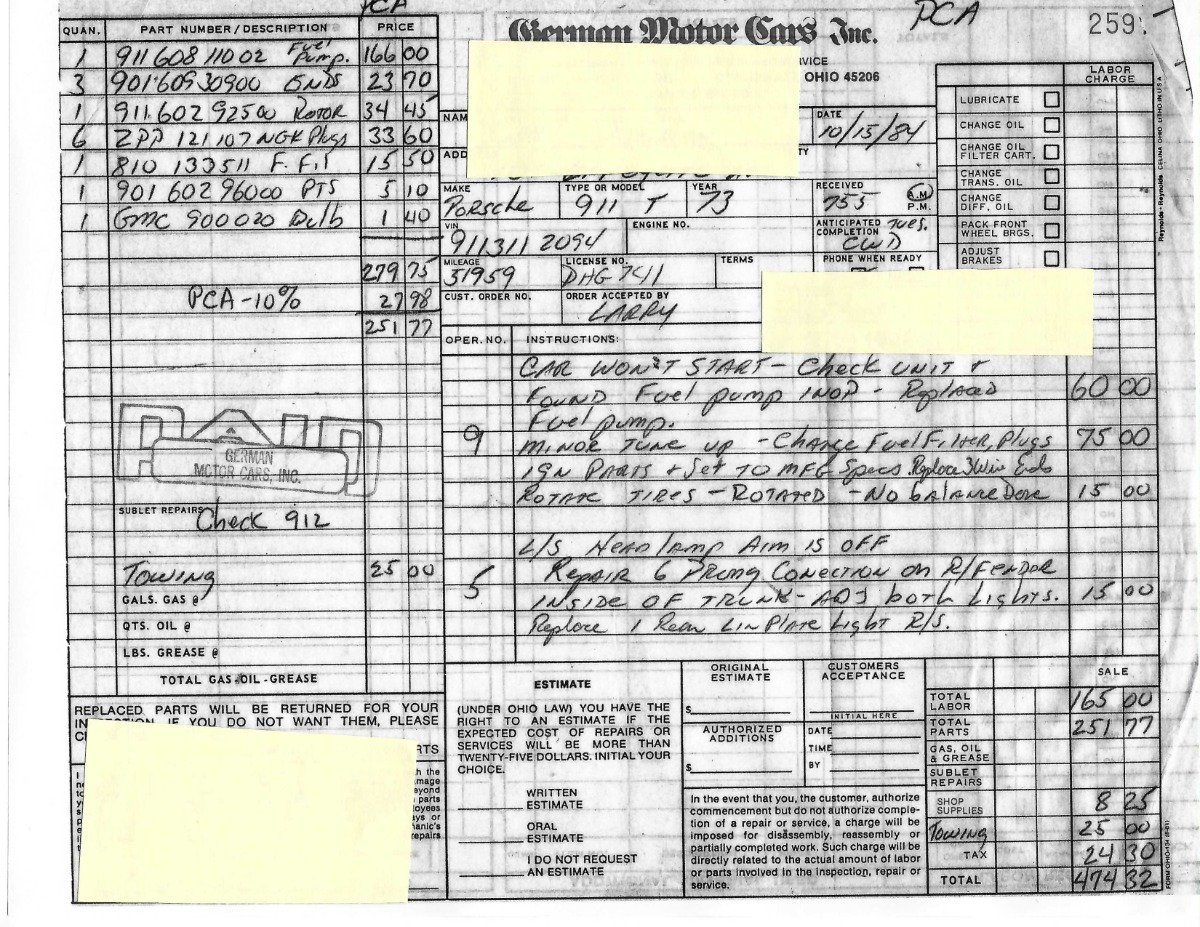 PCA
PCA
259
German Motor Cars Inc.
OHIO 45206
QUAN. PART NUMBER / DESCRIPTION PRICE
1 911 608 110 02 Fuel Pump. 166 00
3 901 609 309 00 ENDS 23 70
1 911.602 925 00 ROTOR 34 45
6 ZPP 121 107 NGK Plugs 33 60
1 810 133511 F. Fil 15 50
1 901 602 960 00 PTS 5 10
1 GMC 900020 Bulb 1 40
279 75
PCA -10% 27 98
251 77
GERMAN
MOTOR CARS, INC.
SUBLET REPAIRS
Check 912
TOWING 25 00
GALS. GAS @
QTS. OIL @
LBS. GREASE @
TOTAL GAS-OIL-GREASE
REPLACED PARTS WILL BE RETURNED FOR YOUR
IF YOU DO NOT WANT THEM, PLEASE
DATE
10/15/84
MAKE TYPE OR MODEL YEAR RECEIVED A.M. P.M.
PORSCHE 911 T 73 755
VIN ENGINE NO. ANTICIPATED COMPLETION TUES.
911311 2094 CWD
MILEAGE LICENSE NO. TERMS PHONE WHEN READY
51959 DHG 7411
CUST. ORDER NO. ORDER ACCEPTED BY
LARRY
LABOR CHARGE
LUBRICATE
CHANGE OIL
CHANGE OIL FILTER CART.
CHANGE TRANS. OIL
CHANGE DIFF. OIL
PACK FRONT WHEEL BRGS.
ADJUST BRAKES
Reynolds + Reynolds CELINA OHIO LITHO IN U.S.A.
OPER. NO. INSTRUCTIONS:
CAR WON'T START - Check UNIT +
FOUND Fuel pump INOP - Replaced 60 00
Fuel pump.
9 MINOR TUNE UP - Change Fuel Filter, Plugs 75 00
IGN PARTS + Set TO MFG Specs. Replace 3 Wire Ends
ROTATE TIRES - ROTATED - NO balance Done 15 00
L/S Headlamp Aim IS OFF
5 Repair 6 Prong Conection on R/FENDOR
INSIDE OF TRUNK - ADJ both Lights. 15 00
Replace 1 Rear Lin Plate Light R/S.
ESTIMATE
(UNDER OHIO LAW) YOU HAVE THE
RIGHT TO AN ESTIMATE IF THE
EXPECTED COST OF REPAIRS OR
SERVICES WILL BE MORE THAN
TWENTY-FIVE DOLLARS. INITIAL YOUR
CHOICE.
WRITTEN ESTIMATE
ORAL ESTIMATE
I DO NOT REQUEST AN ESTIMATE
ORIGINAL ESTIMATE
$
AUTHORIZED ADDITIONS
$
CUSTOMERS ACCEPTANCE
INITIAL HERE
DATE
TIME
BY
In the event that you, the customer, authorize
commencement but do not authorize comple-
tion of a repair or service, a charge will be
imposed for disassembly, reassembly or
partially completed work. Such charge will be
directly related to the actual amount of labor
or parts involved in the inspection, repair or
service.
SALE
TOTAL LABOR 165 00
TOTAL PARTS 251 77
GAS, OIL & GREASE
SUBLET REPAIRS
SHOP SUPPLIES 8 25
TOWING 25 00
TAX 24 30
TOTAL 474 32